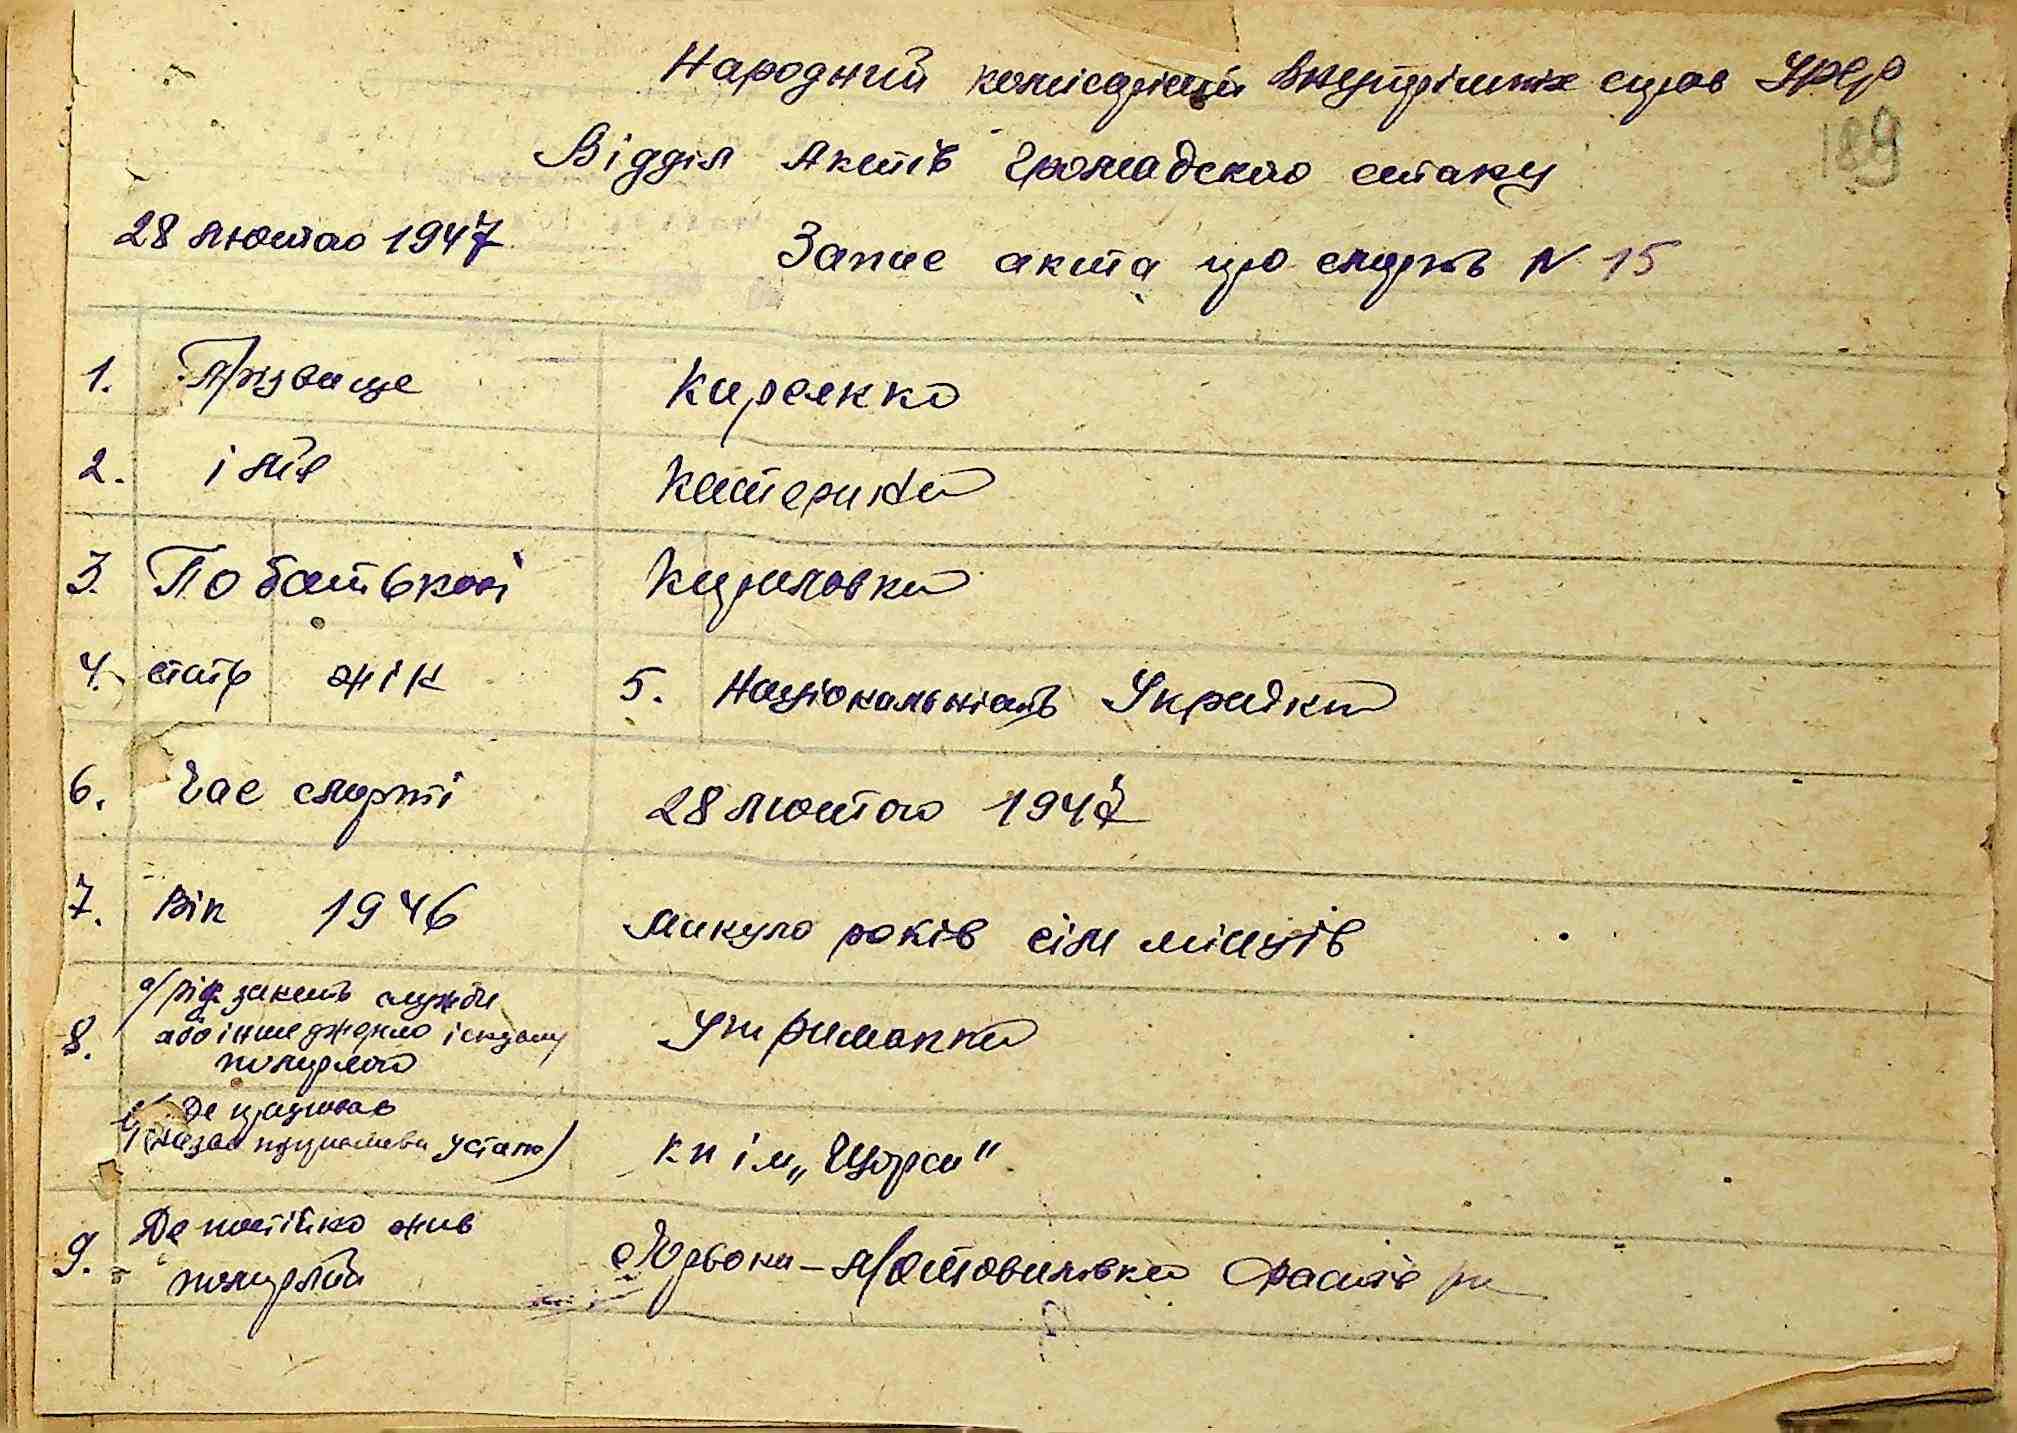 Народний комісаріат внутрішніх справ УРСР
189
Відділ Актів громадського стану
28 лютого 1947
Запис акта про смерть N 15
1. Прізвище Киреянко
2. імя Катерина
3. По батькові Кириловна
4. стать жін 5. Національність Українка
6. Час смерті 28 лютого 1947
7. Вік 1946 минуло років сім місяців
а/ рід занять служби
8. або інше джерело існув Утриманка
померлого
Де працював
(назва устано) кп ім „Щорса"
9. Де постійно жив Червона-Мотовилівка Фастів рн
померлий